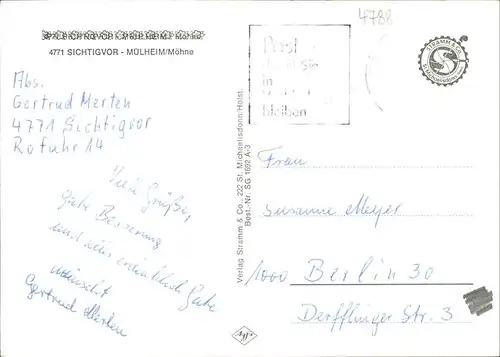 4771 SICHTIGVOR - MÜLHEIM/Möhne
4788
Post
in
bleiben
STRAMM & CO.
St. Michaelisdonn
Abs.
Gertrud Merten
4771 Sichtigvor
Rofuhr 14
Viele Grüße,
gute Besserung
und alles
wünscht
Gertrud Merten
Verlag Stramm & Co., 222 St. Michaelisdonn/Holst.
Best.-Nr. SG 1692 A-3
Frau
Susanne Meyer
1000 Berlin 30
Derfflinger Str. 3